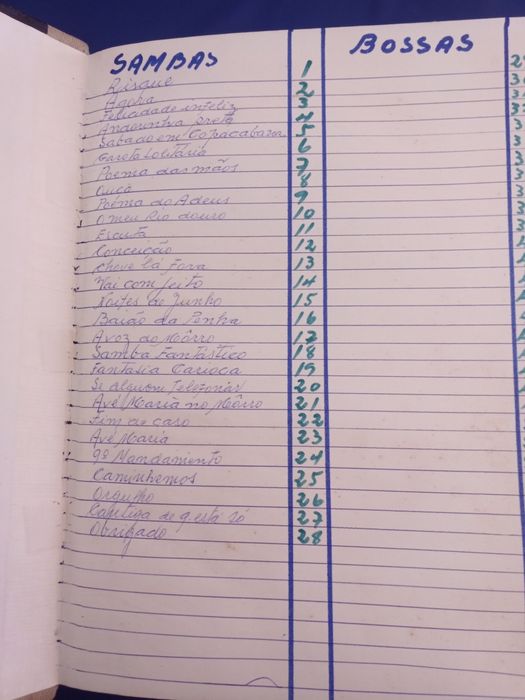 SAMBAS
BOSSAS
Risque 1
Agora 2
Felicidade infeliz 3
Andorinha preta 4
Sabado em Copacabana 5
Garota solitária 6
Poema das mãos 7
Ouça 8
Poema do Adeus 9
O meu Rio douro 10
Escuta 11
Conceição 12
Chove lá fora 13
Vai com jeito 14
Noites de Junho 15
Baião da Penha 16
A voz do Môrro 17
Samba Fantástico 18
Fantasia Carioca 19
Se alguem telefonar 20
Avé Maria no Môrro 21
Fim de caso 22
Avé Maria 23
9º Mandamento 24
Caminhemos 25
Orgulho 26
de q. está só 27
Obrigado 28